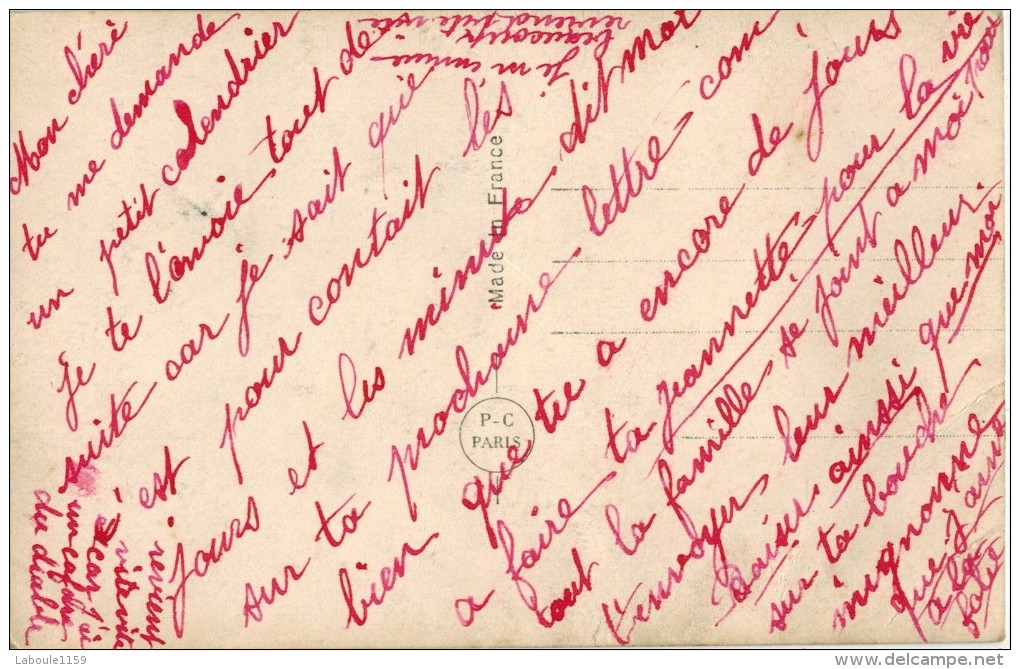 Mon chéri
tu me demande
un petit calendrier
je te l'envoie tout de
suite car je sait que
s'est pour contait les
jours et les minuts dit moi
sur ta prochaine lettre com
bien que tu a encore de jours
a faire ta Jeannette pour la vie
tout la famille se joint a moi pour
t'envoyer leur meilleur
baiser ainsi que moi
sur ta bouche
mignonne
que j'aime
a la
folie
Je m'ennuie
beaucoup
reviend vite
revient
vite vite
car j'ai
un cafare
du diable
Made in France
P-C
PARIS
Laboule1159
delcampe.net